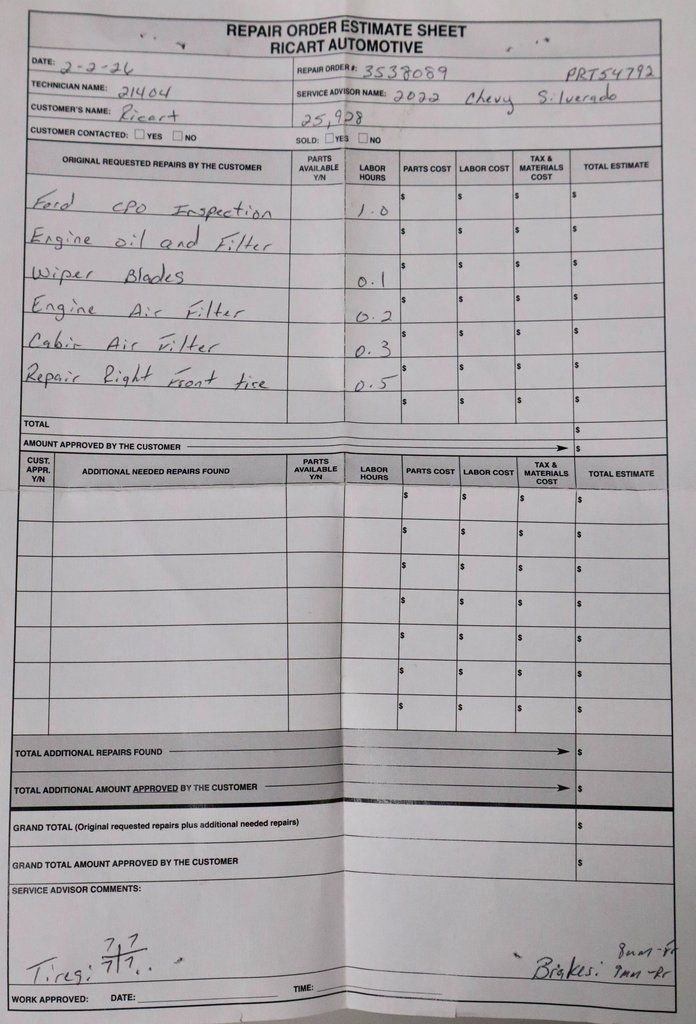 REPAIR ORDER ESTIMATE SHEET
RICART AUTOMOTIVE
DATE: 2-2-26
REPAIR ORDER #: 3538089 PRT54792
TECHNICIAN NAME: 21404
SERVICE ADVISOR NAME: 2022 Chevy Silverado
CUSTOMER'S NAME: Ricart
25,928
CUSTOMER CONTACTED: YES NO
SOLD: YES NO
ORIGINAL REQUESTED REPAIRS BY THE CUSTOMER PARTS AVAILABLE Y/N LABOR HOURS PARTS COST LABOR COST TAX & MATERIALS COST TOTAL ESTIMATE
Ford CPO Inspection 1.0 $ $ $ $
Engine oil and Filter $ $ $ $
Wiper Blades 0.1 $ $ $ $
Engine Air Filter 0.2 $ $ $ $
Cabin Air Filter 0.3 $ $ $ $
Repair Right Front tire 0.5 $ $ $ $
$ $ $ $
TOTAL $
AMOUNT APPROVED BY THE CUSTOMER $
CUST. APPR. Y/N ADDITIONAL NEEDED REPAIRS FOUND PARTS AVAILABLE Y/N LABOR HOURS PARTS COST LABOR COST TAX & MATERIALS COST TOTAL ESTIMATE
$ $ $ $
$ $ $ $
$ $ $ $
$ $ $ $
$ $ $ $
$ $ $ $
$ $ $ $
TOTAL ADDITIONAL REPAIRS FOUND $
TOTAL ADDITIONAL AMOUNT APPROVED BY THE CUSTOMER $
GRAND TOTAL (Original requested repairs plus additional needed repairs) $
GRAND TOTAL AMOUNT APPROVED BY THE CUSTOMER $
SERVICE ADVISOR COMMENTS:
7 7
8mm-Fr
Tires: 7 7
Brakes: 9mm-Rr
WORK APPROVED: DATE: TIME: